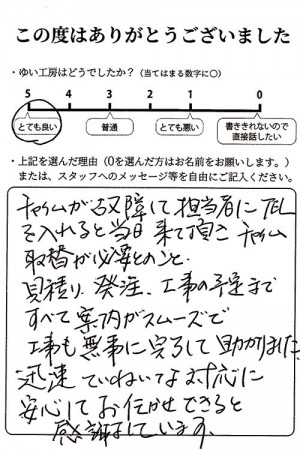 この度はありがとうございました
・ゆい工房はどうでしたか？（当てはまる数字に○）
5 4 3 2 1 0
とても良い 普通 とても悪い 書ききれないので直接話したい
・上記を選んだ理由（0を選んだ方はお名前をお願いします。）
または、スタッフへのメッセージ等を自由にご記入ください。
チャイムが故障して担当者にTEL
を入れると当日来て頂きチャイム
取替が必要とのこと。
見積り、発注、工事の予定まで
すべて案内がスムーズで
工事も無事に完了して助かりました
迅速ていねいな対応に
安心してお任せできると
感謝しています。